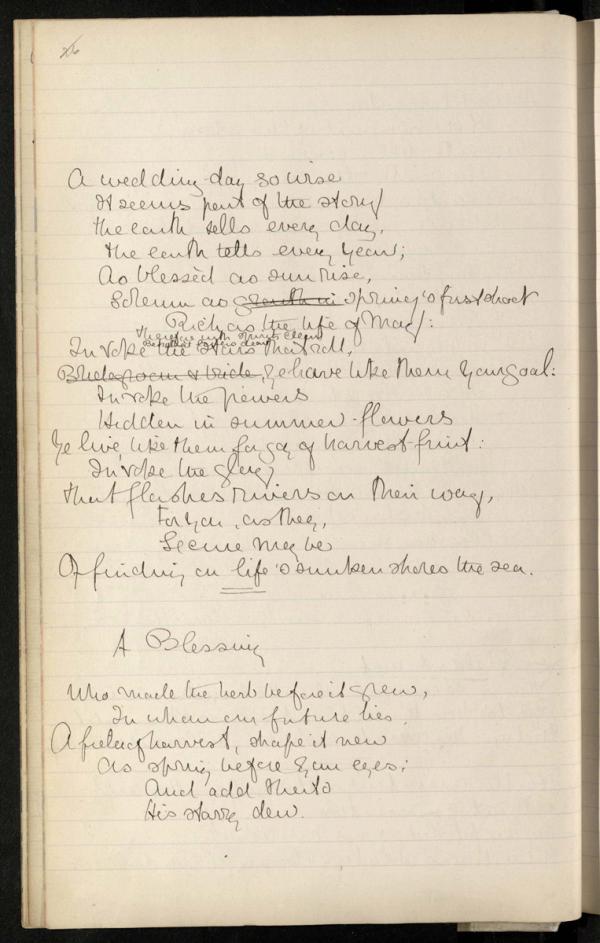 26
A wedding-day so wise
It seems part of the story
The earth tells every day,
The earth tells every year;
As blessèd as sunrise,
Solemn as growth in spring's first shoot
Rich as the life of May:
Therefore with spirits clear
Invoke the stars that roll,
Bridegroom & bride, ye have like them your goal:
Invoke the powers
Hidden in summer-flowers
Ye live, like them for joy of harvest-fruit:
Invoke the glory
That flashes rivers on their way,
For you, as they,
Secure may be
Of finding on life's sunken shores the sea.
A Blessing
Who made the herb before it grew,
In whom our future lies,
A field of harvest, shape it new
As spring before your eyes;
And add thereto
His starry dew.